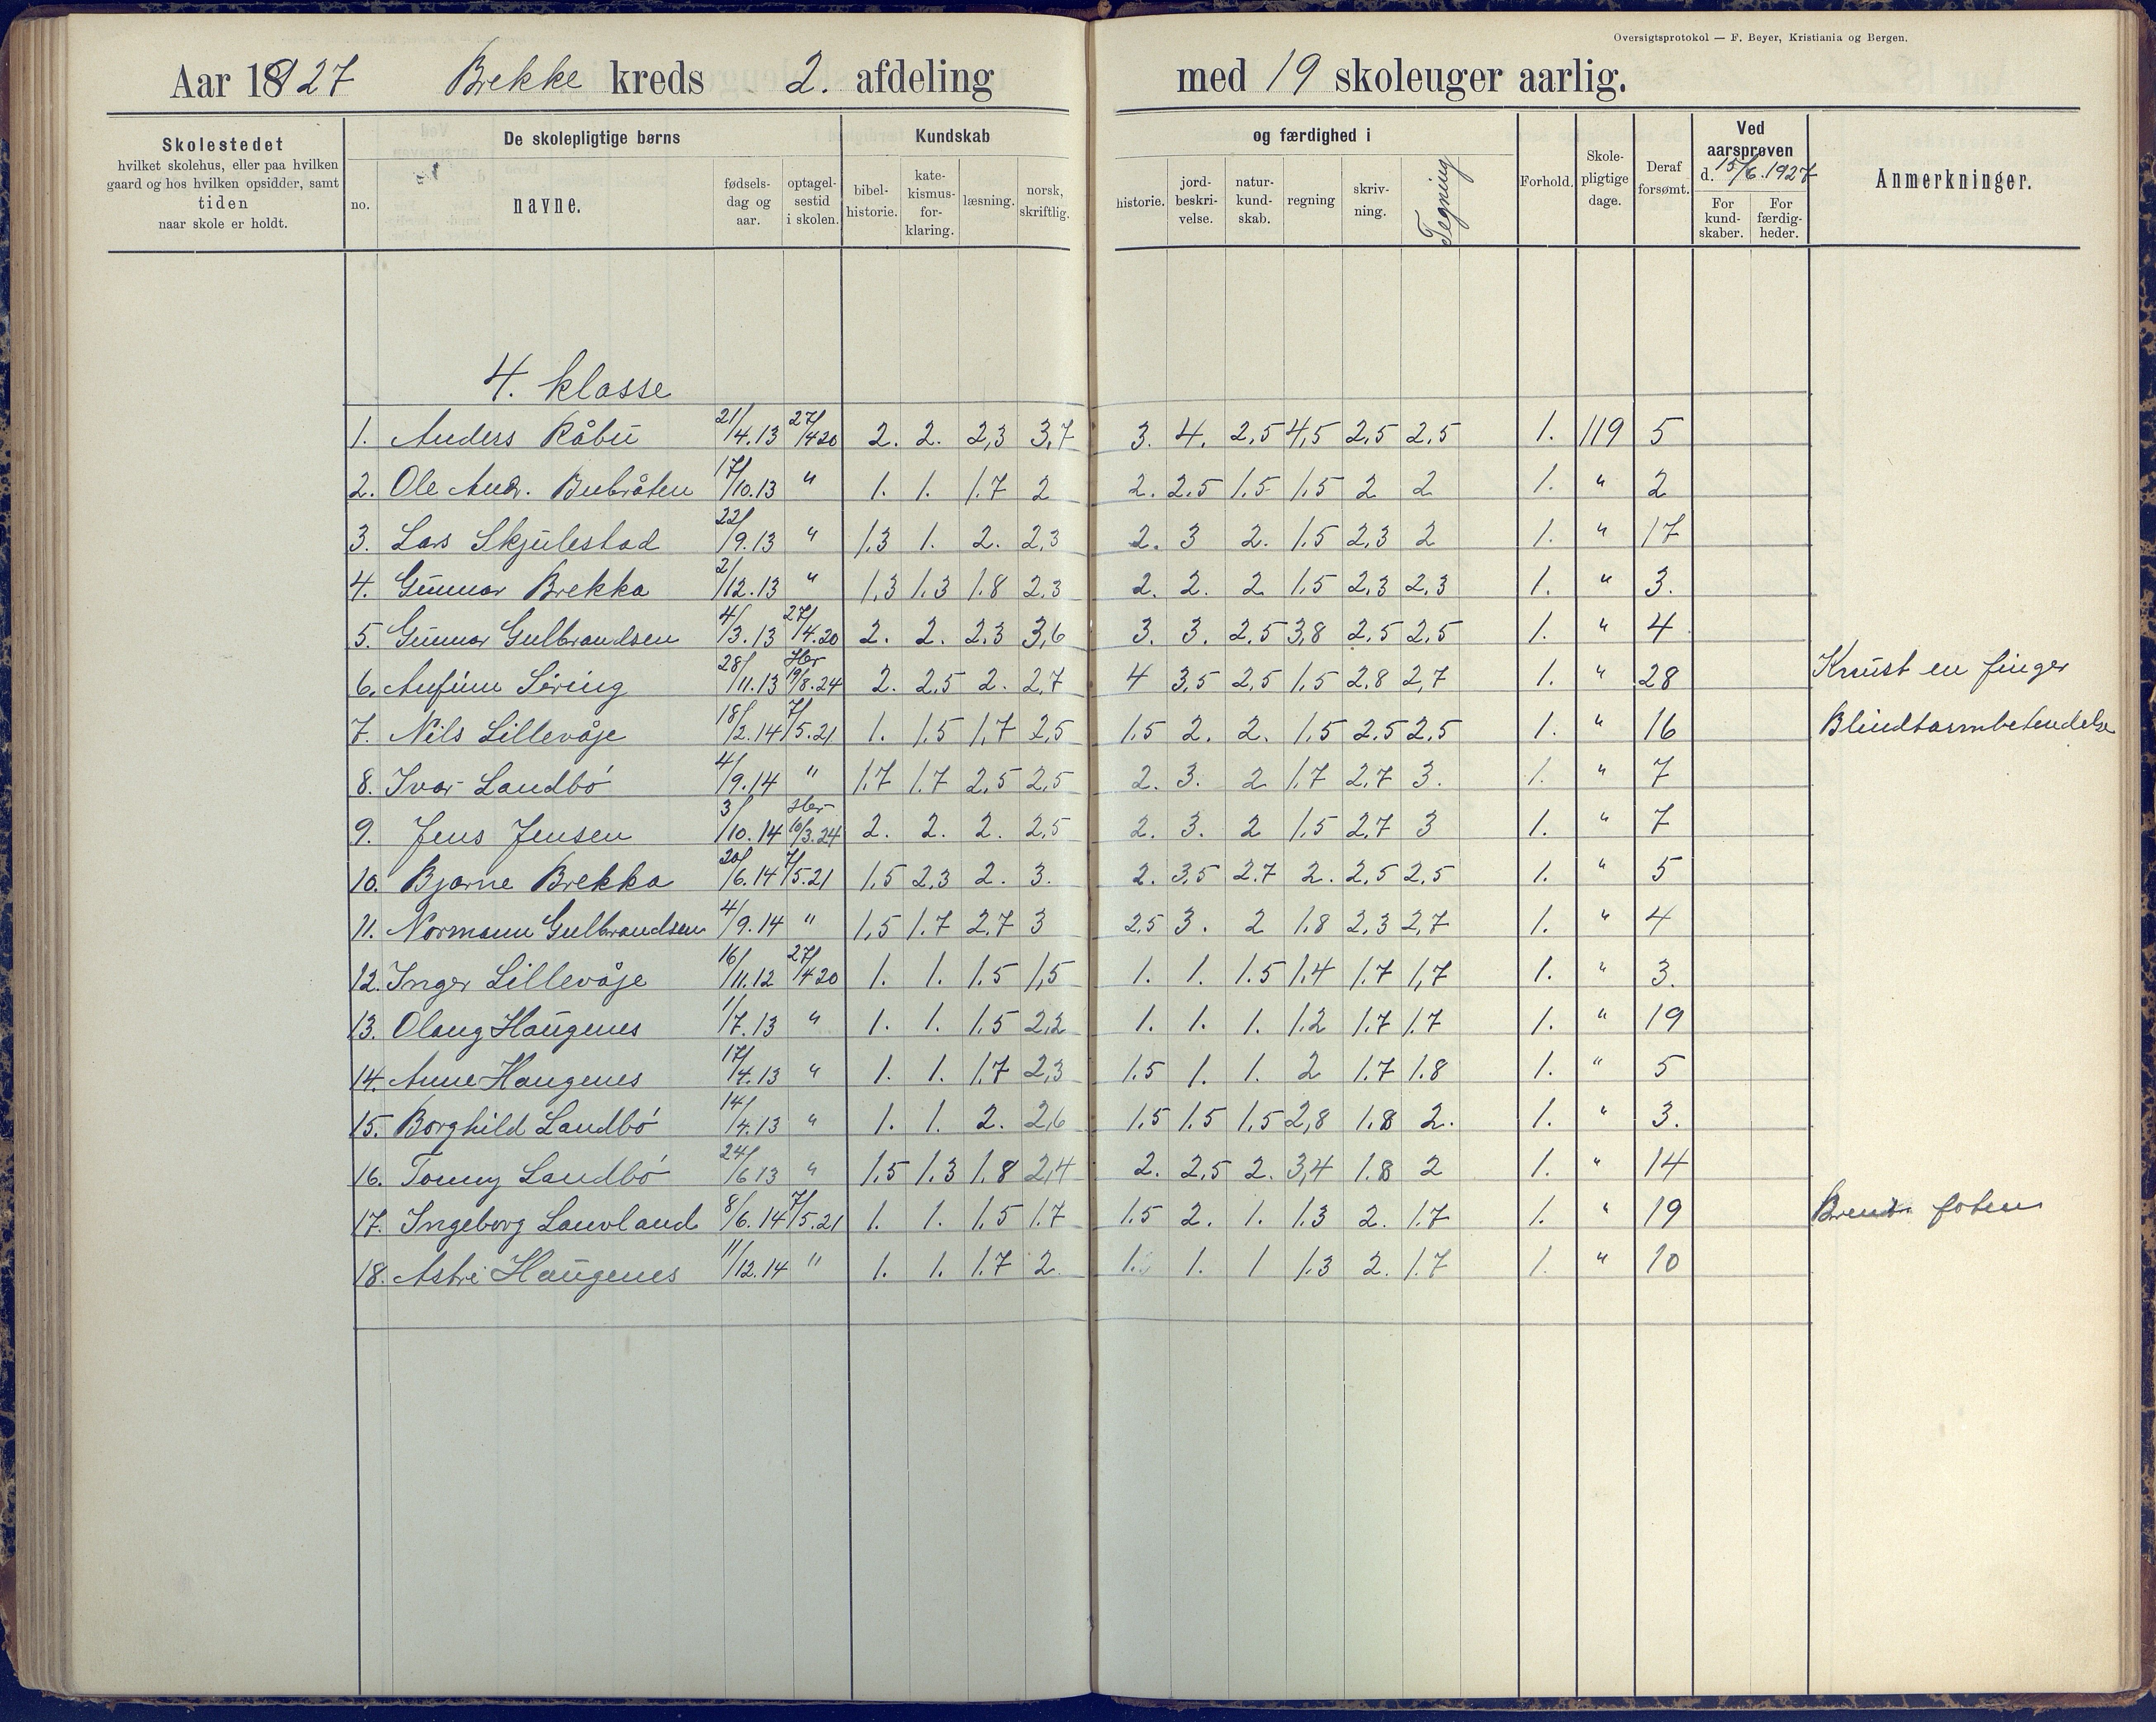 Oversigtsprotokol — F. Beyer, Kristiania og Bergen.
Aar 1927 Brekke kreds 2. afdeling med 19 skoleuger aarlig.
Skolestedet hvilket skolehus, eller paa hvilken gaard og hos hvilken opsidder, samt tiden naar skole er holdt.
De skolepligtige børns
no. navne. fødselsdag og aar. optagelsestid i skolen.
Kundskab og færdighed i
bibelhistorie. katekismusforklaring. læsning. norsk, skriftlig. historie. jordbeskrivelse. naturkundskab. regning skrivning. Tegning
Forhold. Skolepligtige dage. Deraf forsømt.
Ved aarsprøven d. 15/6.1927
For kundskaber. For færdigheder.
Anmerkninger.
4. klasse
1. Anders Råbu 21/4.13 27/4 20 2. 2. 2,3 3,7 3. 4. 2,5 4,5 2,5 2,5 1. 119 5
2. Ole Andr. Bubråten 17/10.13 " 1. 1. 1.7 2 2. 2.5 1.5 1.5 2 2 1. " 2
3. Lars Skjulestad 22/9.13 " 1,3 1. 2. 2,3 2. 3 2. 1.5 2,3 2 1. " 17
4. Gunnar Brekka 2/12.13 " 1,3 1.3 1.8 2,3 2. 2. 2 1.5 2,3 2,3 1. " 3.
5. Gunnar Gulbrandsen 4/3.13 27/4.20 2. 2. 2.3 3,6 3. 3. 2,5 3,8 2,5 2,5 1. " 4
6. Anfinn Siring 28/11.13 Her 19/8.24 2. 2,5 2. 2,7 4 3,5 2,5 1.5 2.8 2,7 1. " 28 Knust en finger
7. Nils Lillevåje 18/2.14 7/5.21 1. 1.5 1,7 2,5 1.5 2. 2. 1,5 2.5 2,5 1. " 16 Blindtarmbetendelse
8. Ivar Landbó 4/9.14 " 1.7 1.7 2,5 2,5 2. 3. 2 1.7 2,7 3. 1. " 7
9. Jens Jensen 3/10.14 Her 10/3.24 2. 2. 2. 2,5 2. 3. 2 1.5 2,7 3 1. " 7
10. Bjarne Brekka 20/6.14 7/5.21 1,5 2,3 2. 3. 2. 3,5 2.7 2. 2,5 2,5 1. " 5
11. Normann Gulbrandsen 4/9.14 " 1,5 1.7 2,7 3 2,5 3. 2 1.8 2,3 2,7 1. " 4
12. Inger Lillevåje 16/11.12 27/4 20 1. 1. 1.5 1,5 1. 1. 1.5 1,4 1.7 1,7 1. " 3.
13. Olaug Haugenes 1/7.13 " 1. 1. 1.5 2,2 1. 1. 1. 1.2 1.7 1.7 1. " 19
14. Anne Haugenes 17/4.13 " 1. 1. 1.7 2,3 1.5 1. 1. 2 1.7 1.8 1. " 5
15. Borghild Landbó 14/4.13 " 1. 1. 2. 2,6 1.5 1.5 1.5 2,8 1.8 2. 1. " 3.
16. Tonny Landbó 24/6 13 " 1.5 1.3 1.8 2,4 2. 2,5 2. 3,4 1.8 2 1. " 14
17. Ingeborg Lauvland 8/6.14 7/5.21 1. 1. 1.5 1.7 1.5 2. 1. 1.3 2. 1.7 1. " 19 foten
18. Astri Haugenes 11/12.14 " 1. 1. 1.7 2. 1. 1. 1 1.3 2. 1.7 1. " 10